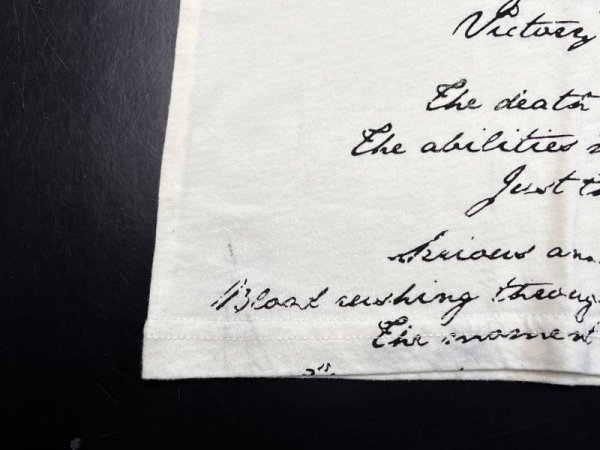 Victory
The death
The abilities
Just th
Serious an
Blood rushing throug
The moment